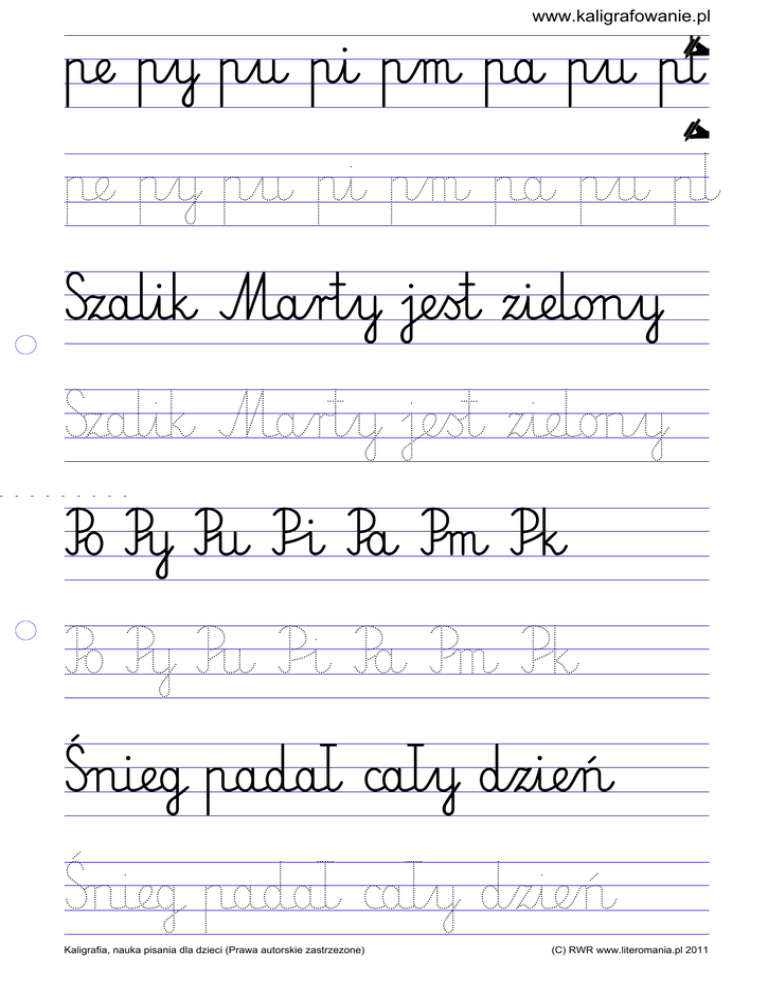 www.kaligrafowanie.pl
pe py pu pi pm pa pu pt
pe py pu pi pm pa pu pt
Szalik Marty jest zielony
Szalik Marty jest zielony
Po Py Pu Pi Pa Pm Pk
Po Py Pu Pi Pa Pm Pk
Śnieg padał cały dzień
Śnieg padał cały dzień
Kaligrafia, nauka pisania dla dzieci (Prawa autorskie zastrzezone) (C) RWR www.literomania.pl 2011